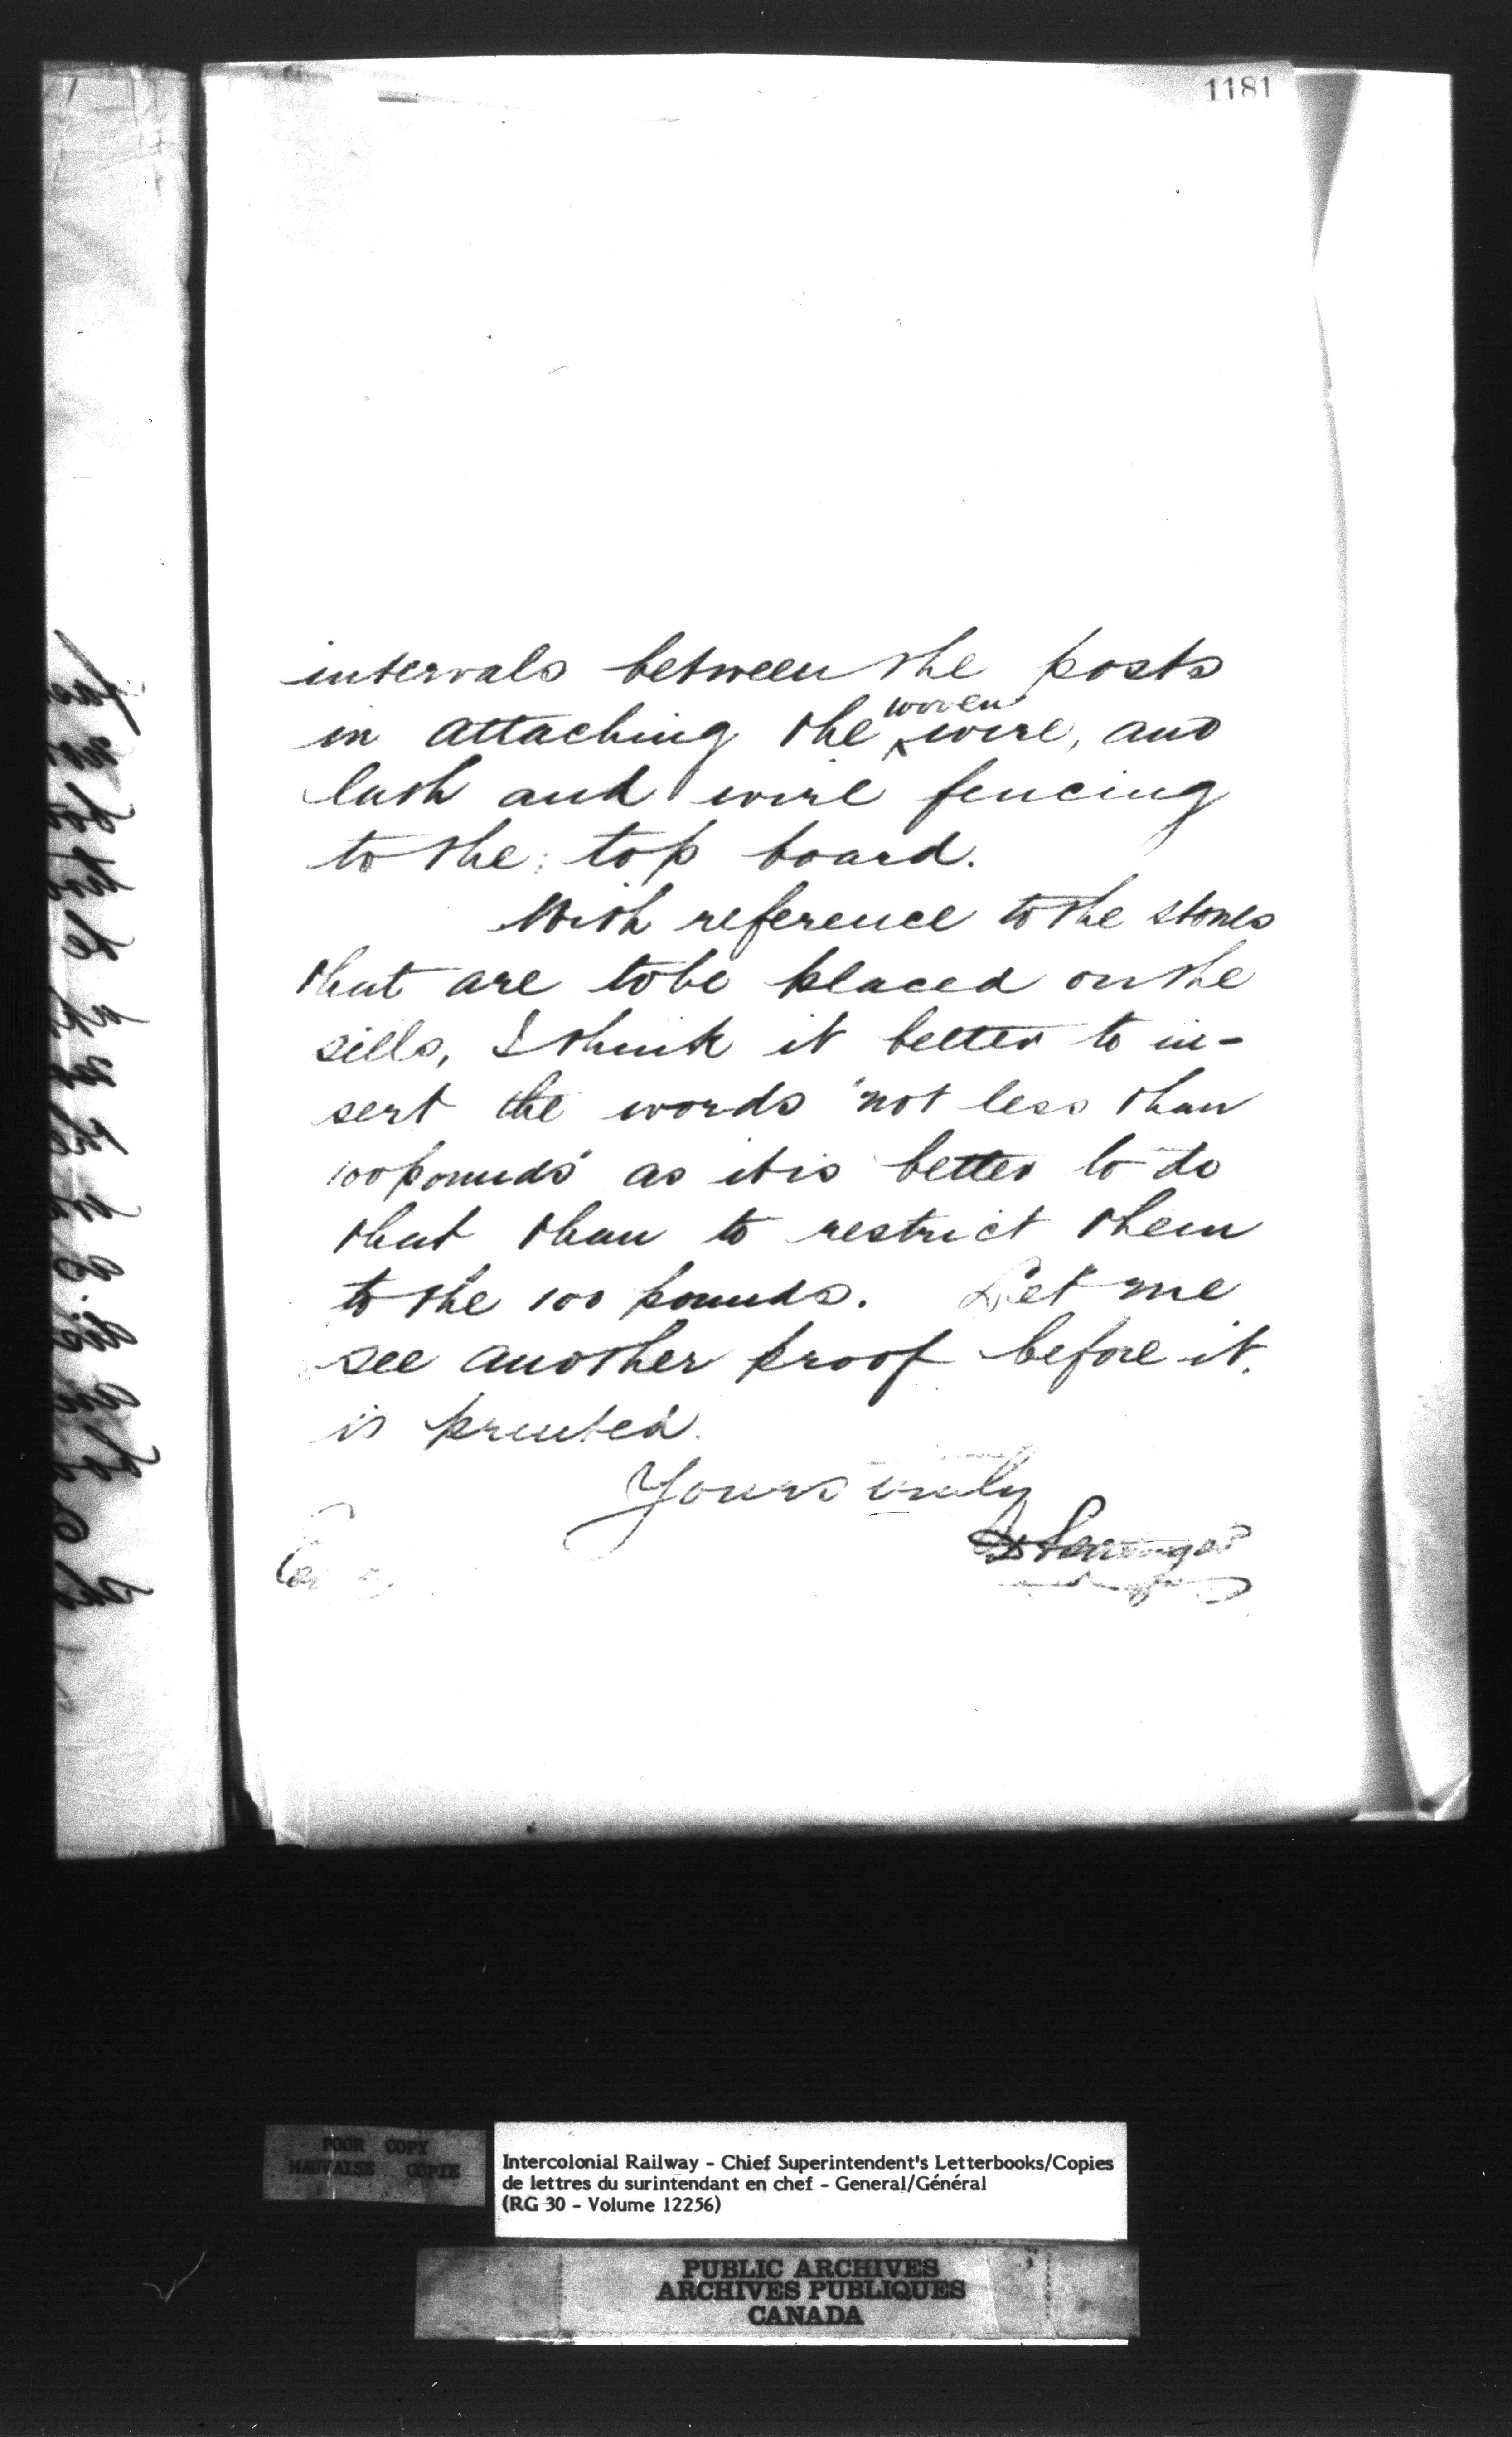 1181
intervals between the posts
in attaching the woven wire, and
lash and wire fencing
to the top board.
With reference to the stones
that are to be placed on the
sills, I think it better to in-
sert the words "not less than
100 pounds" as it is better to do
that than to restrict them
to the 100 pounds. Let me
see another proof before it
is printed.
Yours truly
D Pottinger
POOR COPY
MAUVAISE COPIE
Intercolonial Railway - Chief Superintendent's Letterbooks/Copies
de lettres du surintendant en chef - General/Général
(RG 30 - Volume 12256)
PUBLIC ARCHIVES
ARCHIVES PUBLIQUES
CANADA